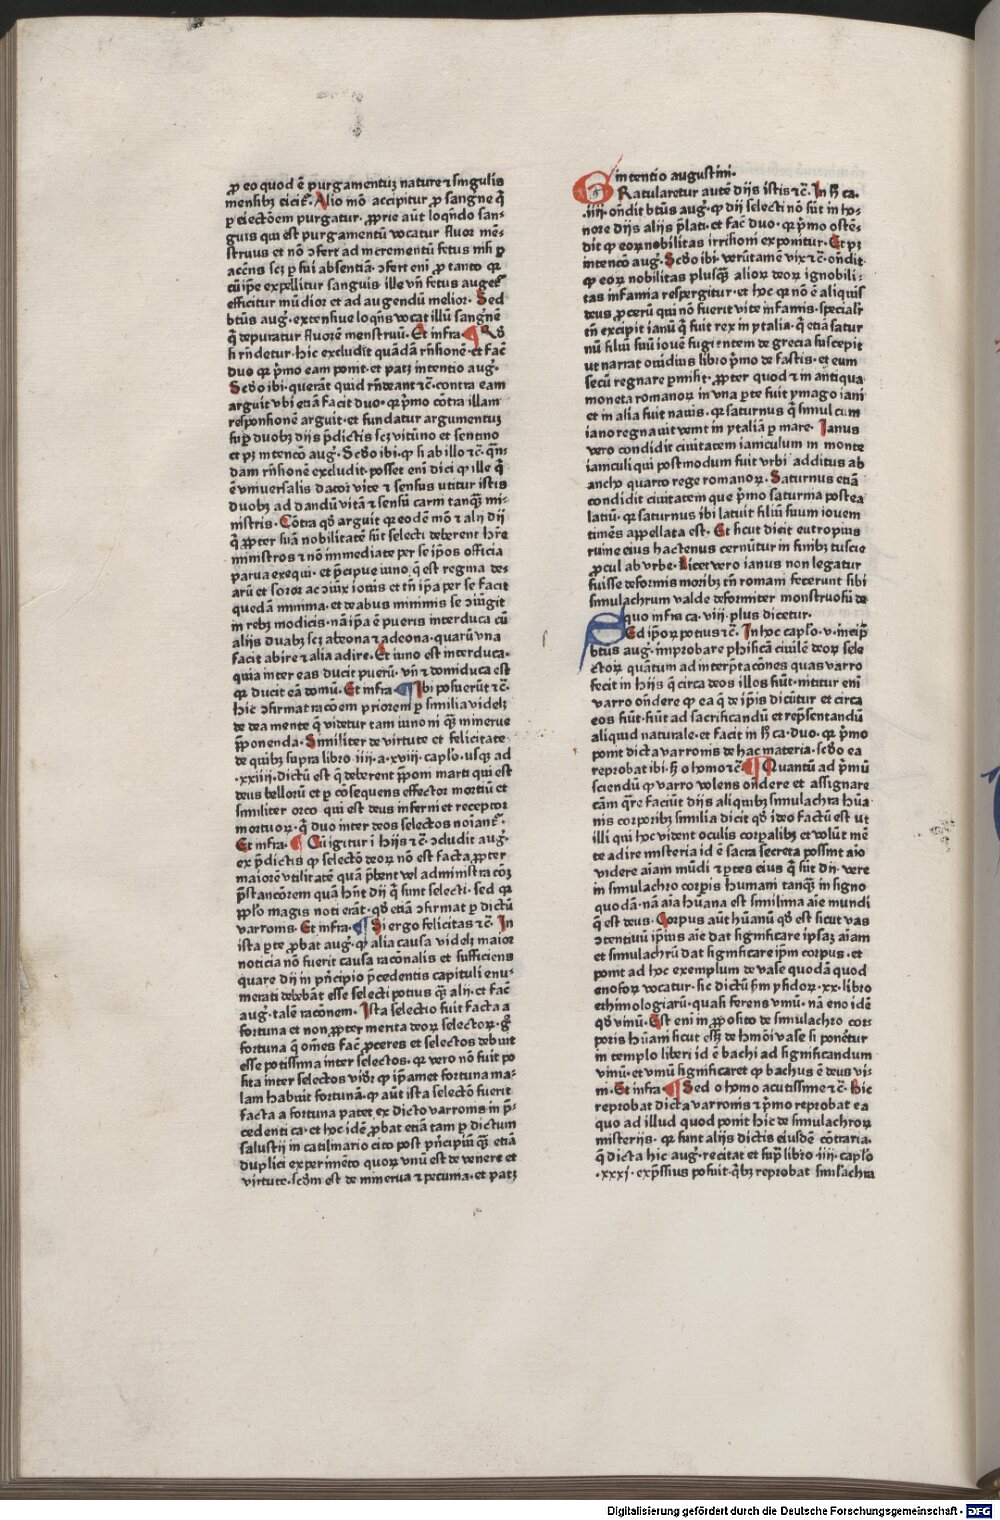 ꝓ eo quod ē purgamentuꝫ nature ⁊ singulis
mensibꝰ eicit᷑. Alio mō accipitur ꝓ sangne q̄
ꝑ eiectōem purgatur. ꝓprie aūt loqn̄do san-
guis qui est purgamentū vocatur fluor mē-
struus et nō ↄfert ad incrementū fetus nisi ꝑ
accn̄s scꝫ ꝑ sui absentiā. ↄfert eni ꝓ tanto qꝛ
cū ip̄e expellitur sanguis ille vn̄ fetus auget᷑
efficitur mūdior et ad augendū melior. Sed
btūs aug. extensiue loqn̄s vocat illū sangnē
q̄ depuratur fluorē menstruū. Et infra ¶ Qd̓
si rn̄detur. hic excludit quādā rn̄sionē. et fac̄
duo qꝛ pͥmo eam ponit. et patꝫ intentio aug.
Scd̓o ibi. querāt quid rn̄deant ⁊c̄. contra eam
arguit vbi etiā facit duo. qꝛ pͥmo cōtra illam
responsionē arguit. et fundatur argumentuꝫ
suꝑ duobꝫ dijs p̄dictis scꝫ vitūno et sentino
et pꝫ intencō aug. Scd̓o ibi. ꝙ si ab illo ⁊c̄. qn̄-
dam rn̄sionē excludit. posset eni dici ꝙ ille q̄
ē vniuersalis dator vite ⁊ sensus vtitur istis
duobꝫ ad dandū vitā ⁊ sensū carni tanqꝫ mi-
nistris. Cōtra qd̓ arguit qꝛ eodē mō ⁊ alij dij
q̄ ꝓpter suā nobilitatē sūt selecti deberent hr̄e
ministros ⁊ nō immediate per se ip̄os officia
parua exequi. et p̄cipue iuno q̄ est regina de-
arū et soror ac ↄiūx iouis et tn̄ ip̄a per se facit
quedā minima. et deabus minimis se ↄiūgit
in rebꝫ modicis. nā ip̄a ē pueris interduca cū
alijs duabꝫ scꝫ abeona ⁊ adeona. quarū vna
facit abire ⁊ alia adire. Et iuno est interduca.
quia inter eas ducit puerū. vn̄ ⁊ domiduca est
qꝛ ducit eā domū. Et infra ¶ Ibi posuerūt ⁊c̄.
hic ↄfirmat racōem priorem ꝑ similia videlꝫ
de dea mente q̄ videtur tam iunoni qꝫ minerue
p̄ponenda. Similiter de virtute et felicitate
de quibꝫ supra libro .iiij. a .xviij. caplo. usqꝫ ad
.xxiiij. dictū est q̄ deberent p̄poni marti qui est
deus bellorū et ꝑ cōsequens effector mortiū et
similiter orco qui est deus inferni et receptor
mortuoꝝ. q̄ duo inter deos selectos noīant᷑.
Et infra. ¶ Cū igitur i hijs ⁊c̄. ↄcludit aug.
ex p̄dictis ꝙ selectō deoꝝ nō est facta ꝓpter
maiorē vtilitatē quā p̄bent vel administracōꝫ
p̄stancōrem quā hn̄t dij q̄ sunt selecti. sed qꝛ
ꝓplo magis noti erāt. qd̓ etiā ↄfirmat ꝑ dictū
varronis. Et infra. ¶ Si ergo felicitas ⁊c̄. In
ista ꝑte ꝓbat aug. ꝙ alia causa videlꝫ maior
noticia nō fuerit causa racōnalis et sufficiens
quare dij in pn̄cipio p̄cedentis capituli enu-
merati debebāt esse selecti potius qꝫ alij. et fac̄
aug. talē racōnem. Ista selectio fuit facta a
fortuna et non ꝓpter merita deoꝝ selectoꝝ. gͦ
fortuna q̄ om̄es fac̄ ꝓceres et selectos debuit
esse potissima inter selectos. qꝛ vero nō fuit po
sita inter selectos vid̓r ꝙ ip̄amet fortuna ma-
lam habuit fortunā. ꝙ aūt ista selectō fuerit
facta a fortuna patet ex dicto varronis in p̄-
cedenti ca. et hoc idē ꝓbat etiā tam ꝑ dictum
salustij in catilinario cito post pn̄cipiū qꝫ etiā
duplici experimēto quoꝝ vnū est de venere et
virtute. scd̓m est de minerua ⁊ pecunia. et patꝫ
intentio augustini.
GRatularetur autē dijs istis ⁊c̄. In h̄ ca.
.iiij. ondit btūs aug. ꝙ dij selecti nō sūt in ho-
nore dijs alijs p̄lati. et fac̄ duo. qꝛ pͥmo ostē-
dit ꝙ eoꝝ nobilitas irrisioni exponitur. Et pꝫ
intencō aug. Scd̓o ibi. verūtamē vix ⁊c̄. ondit
ꝙ eoꝝ nobilitas plusqꝫ alioꝝ deoꝝ ignobili-
tas infamia respergitur. et hoc qꝛ nō ē aliquis
deus ꝓcerū qui nō fuerit vite infamis. specialr̄
tn̄ excipit ianū q̄ fuit rex in ytalia. q̄ etiā satur
nū filiū suū iouē fugientem de grecia suscepit
ut narrat ouidius libro pͥmo de fastis. et eum
secū regnare ꝑmisit. ꝓpter quod ⁊ in antiqua
moneta romanoꝝ in vna ꝑte fuit ymago iani
et in alia fuit nauis. qꝛ saturnus q̄ simul cum
iano regnauit venit in ytaliā ꝑ mare. Ianus
vero condidit ciuitatem ianiculum in monte
ianiculi qui postmodum fuit vrbi additus ab
ancho quarto rege romanoꝝ. Saturnus etiā
condidit ciuitatem que pͥmo saturnia postea
latiū. qꝛ saturnus ibi latuit filiū suum iouem
timēs appellata est. Et sicut dicit eutropius
ruine eius hactenus cernūtur in finibꝫ tuscie
ꝓcul ab vrbe. Licet vero ianus non legatur
fuisse deformis moribꝫ tn̄ romani fecerunt sibi
simulachrum valde deformiter monstruosū de
quo infra ca. viij. plus dicetur.
SEd ip̄oꝝ potius ⁊c̄. In hoc caplo. v. incip̄
btūs aug. improbare phisicā ciuilē deoꝝ sele
ctoꝝ quātum ad interp̄tacōnes quas varro
fecit in hijs q̄ circa deos illos fiūt. nititur eni
varro on̄dere ꝙ ea q̄ de ip̄is dicūtur et circa
eos fiūt. fiūt ad sacrificandū et rep̄sentandū
aliquid naturale. et facit in h̄ ca. duo. qꝛ pͥmo
ponit dicta varronis de hac materia. scd̓o ea
reprobat ibi. h̄ o homo ⁊c̄. ¶ Quantū ad pͥmū
sciendū ꝙ varro volens on̄dere et assignare
cām q̄re faciūt dijs aliquibꝫ simulachra hūa
nis corporibꝫ similia dicit qd̓ ideo factū est ut
illi qui hoc vident oculis corꝑalibꝫ et volūt mē
te adire misteria id ē sacra secreta possint aīo
videre aīam mūdi ⁊ ꝑtes eius q̄ sūt dij. vere
in simulachro corꝑis humani tanqꝫ in signo
quodā. nā aīa hūana est simil̓ima aīe mundi
q̄ est deus. Corpus aūt hūanū qd̓ est sicut vas
ↄtentiuū ip̄ius aīe dat significare ipsaꝫ aīam
et simulachrū dat significare ip̄m corpus. et
ponit ad hoc exemplum de vase quodā quod
enoforꝫ vocatur. sic dictū sm̄ ysidoꝝ. xx. libro
ethimologiarū. quasi ferens vinū. nā eno idē
qd̓ vinū. Est eni in ꝓposito de simulachro cor-
poris hūani sicut esꝫ de hmōi vase si ponētur
in templo liberi id ē bachi ad significandum
vinū. et vinū significaret ꝙ bachus ē deus vi-
ni. Et infra ¶ Sed o homo acutissime ⁊c̄. Hic
reprobat dicta varronis ⁊ pͥmo reprobat ea
quo ad illud quod ponit hic de simulachroꝝ
misterijs. qꝛ sunt alijs dictis eiusdē cōtraria.
q̄ dicta hic aug. recitat et supͣ libro .iiij. caplo
.xxxj. exp̄ssius posuit. qͥbꝫ reprobat simlachra
Digitalisierung gefördert durch die Deutsche Forschungsgemeinschaft - DFG